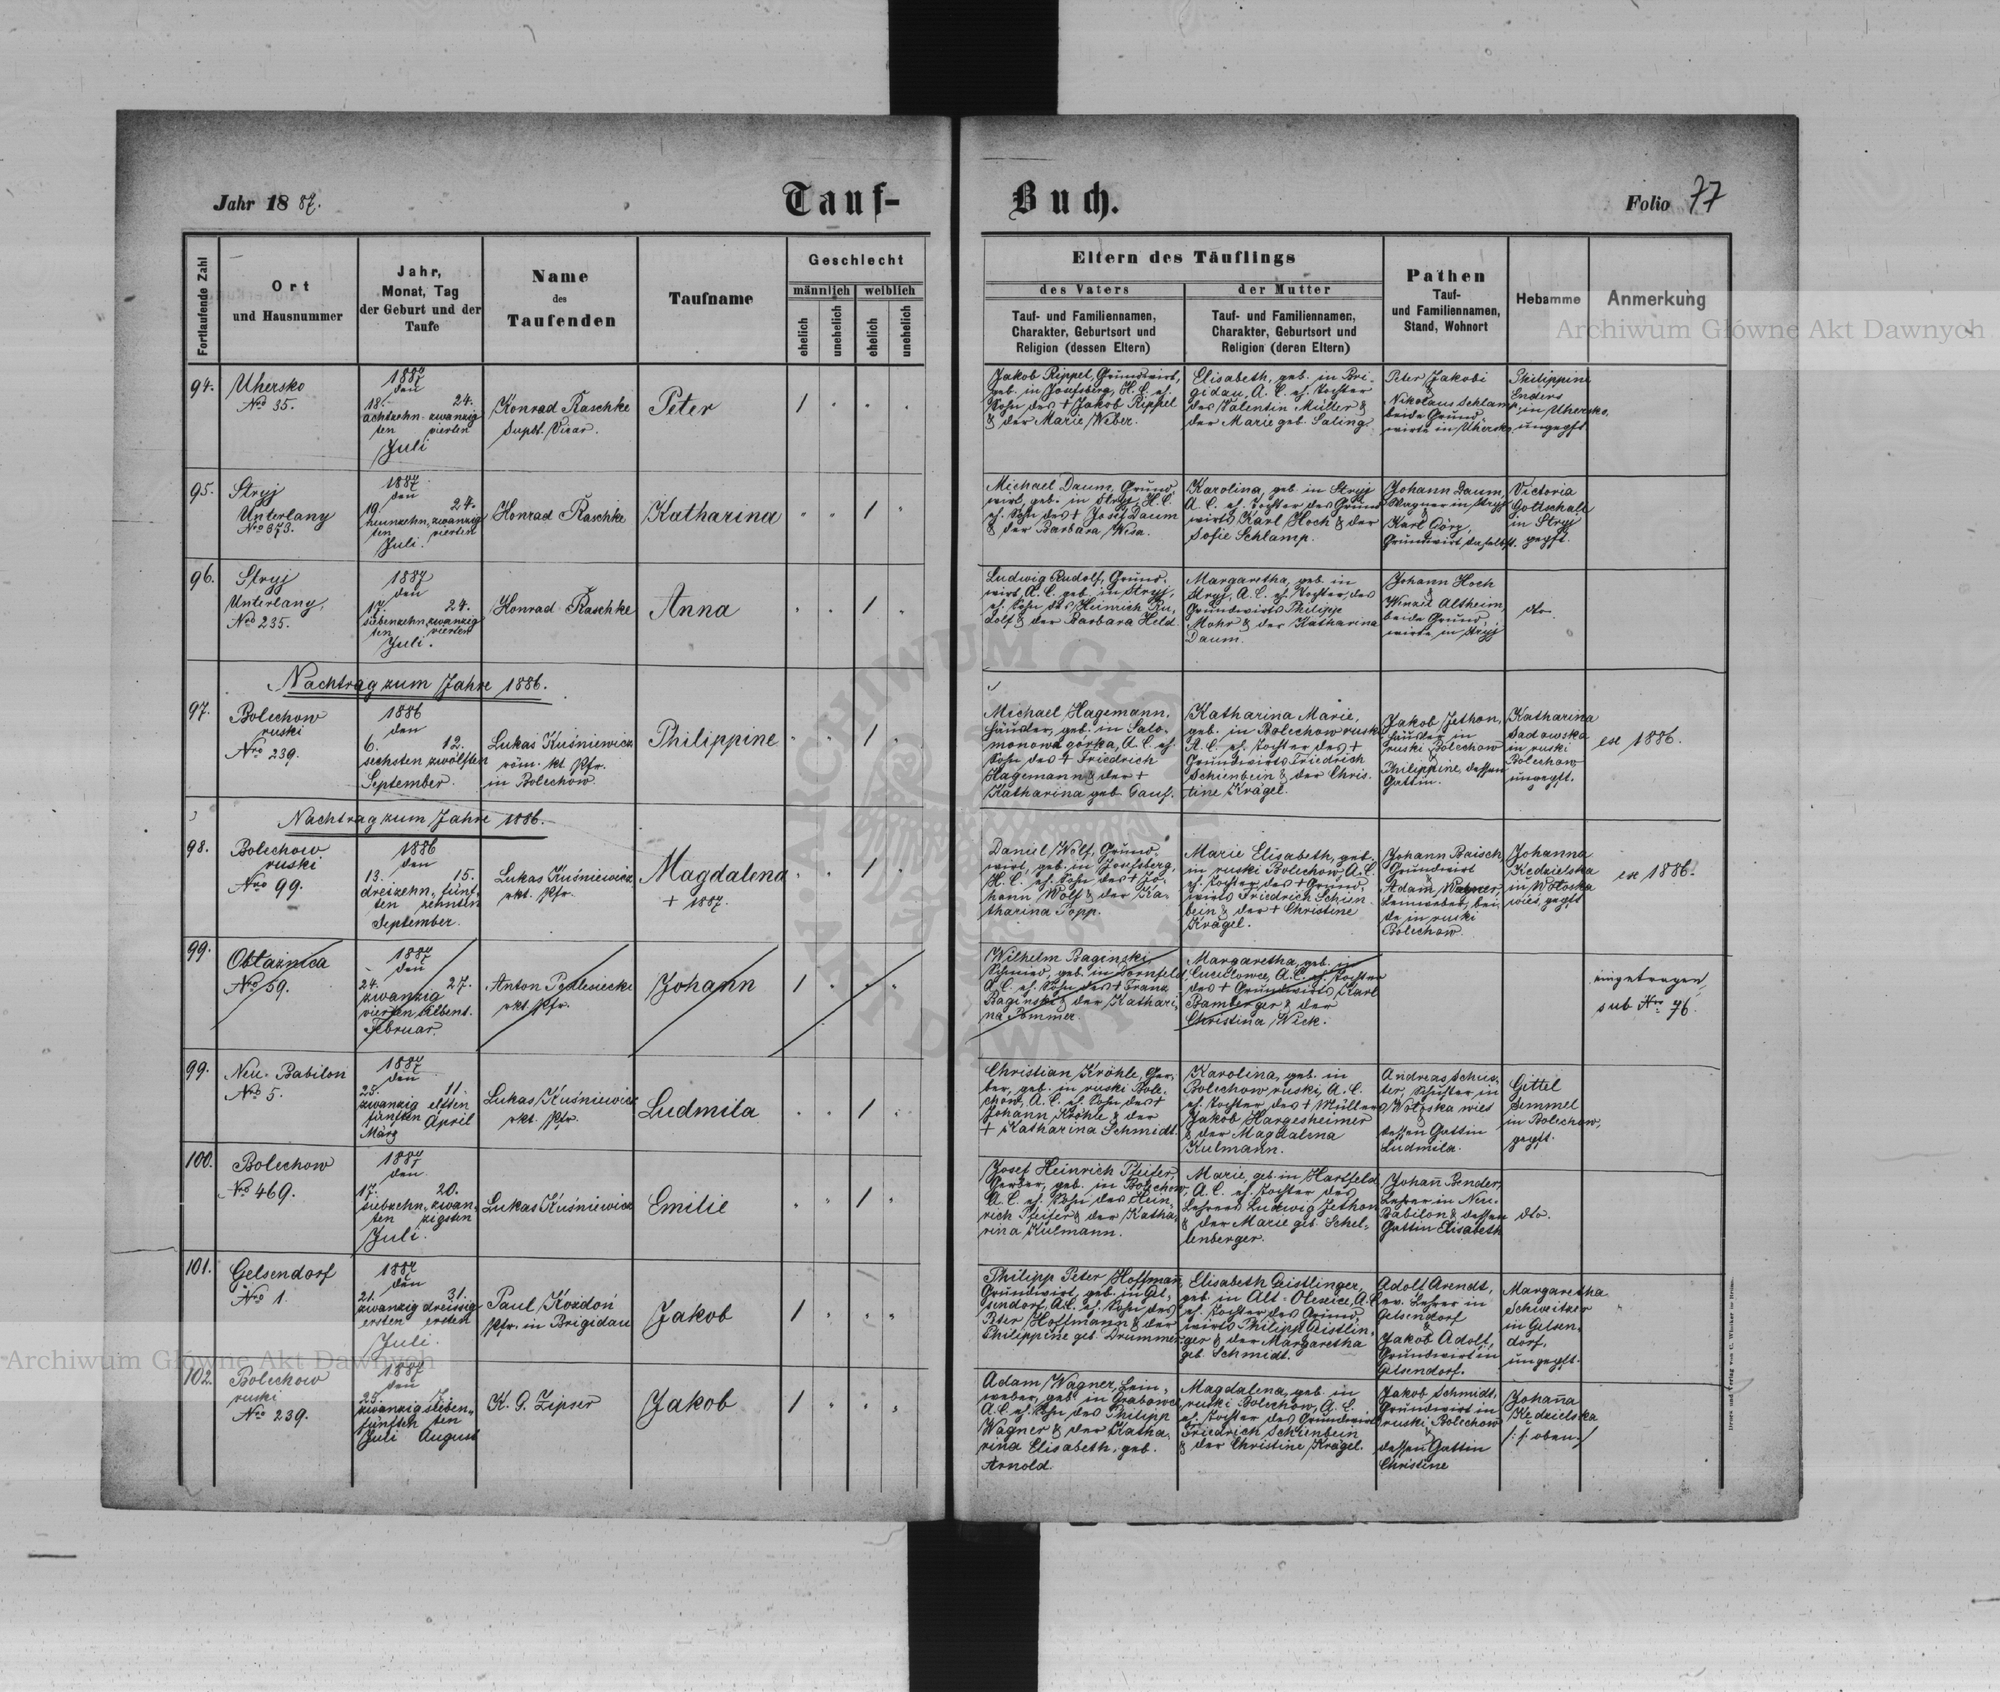 Jahr 1887.
Tauf-
Buch.
Folio 77
Fortlaufende Zahl
Ort
und Hausnummer
Jahr,
Monat, Tag
der Geburt und der
Taufe
Name
des
Taufenden
Taufname
Geschlecht
männlich
weiblich
ehelich
unehelich
ehelich
unehelich
Eltern des Täuflings
des Vaters
Tauf- und Familiennamen,
Charakter, Geburtsort und
Religion (dessen Eltern)
der Mutter
Tauf- und Familiennamen,
Charakter, Geburtsort und
Religion (deren Eltern)
Pathen
Tauf-
und Familiennamen,
Stand, Wohnort
Hebamme
Anmerkung
Archiwum Główne Akt Dawnych
94.
Uhersko
Nro 35.
1887
den
18. 24.
achtzehn- zwanzig
ten vierten
Juli
Konrad Raschke
Supbt. Vicar.
Peter
1
Jakob Rippel, Grundwirt,
geb. in Josefsberg, H. C. eh.
Sohn des + Jakob Rippel
& der Marie Weber.
Elisabeth, geb. in Bri-
gidau, A. C. eh. Tochter
des Valentin Müller &
der Marie geb. Saling.
Peter Jakobi
&
Nikolaus Schlamp,
beide Grund-
wirte in Uhersko
Philippine
Enders
in Uhersko,
ungepft
95.
Stryj
Unterlany
Nro 373.
1887
den
19. 24.
neunzehn- zwanzig
ten vierten
Juli.
Konrad Raschke
Katharina
1
Michael Daum, Grund-
wirt, geb. in Stryj, H. C.
eh. Sohn des + Josef Daum
& der Barbara Wisa.
Karolina, geb. in Stryj
A. C. eh. Tochter des Grund-
wirts Karl Hoch & der
Sofie Schlamp.
Johann Daum,
Wagner in Stryj
&
Karl Görz,
Grundwirt daselbst.
Victoria
Gottschalk
in Stryj
gepft.
96.
Stryj
Unterlany,
Nro 235.
1887
den
17. 24.
siebenzehn- zwanzig
ten vierten
Juli.
Konrad Raschke
Anna
1
Ludwig Rudolf, Grund-
wirt, A. C. geb. in Stryj,
eh. Sohn des Heinrich Ru-
dolf & der Barbara Held.
Margaretha, geb. in
Stryj, A. C. eh. Tochter des
Grundwirts Philipp
Mohr & der Katharina
Daum.
Johann Hoch
&
Wenzel Altheim,
beide Grund-
wirte in Stryj
dto.
Nachtrag zum Jahre 1886.
97.
Bolechow
ruski
Nro 239.
1886
den
6. 12.
sechsten zwölften
September.
Lukas Kuśniewicz
röm. kt Pfr.
in Bolechow.
Philippine
1
Michael Hagemann,
Häusler, geb. in Salo-
monowa górka, A. C. eh.
Sohn des + Friedrich
Hagemann & der +
Katharina geb. Gauf.
Katharina Marie,
geb. in Bolechow ruski
A. C. eh. Tochter des +
Grundwirts Friedrich
Schienbein & der Chris-
tine Krägel.
Jakob Jethon,
Häusler in
ruski Bolechow
&
Philippine, dessen
Gattin.
Katharina
Sadowska
in ruski
Bolechow
ungepft.
ex 1886.
Nachtrag zum Jahre 1886.
98.
Bolechow
ruski
Nro 99.
1886
den
13. 15.
dreizehn- fünf-
ten zehnten
September.
Lukas Kuśniewicz
rkt. Pfr.
Magdalena
+ 1887.
1
Daniel Wolf, Grund-
wirt, geb. in Josefsberg,
H. C. eh. Sohn des + Jo-
hann Wolf & der Ka-
tharina Popp.
Marie Elisabeth, geb.
in ruski Bolechow, A. C.
eh. Tochter des + Grund-
wirts Friedrich Schien-
bein & der + Christine
Krägel.
Johann Baisch,
Grundwirt
&
Adam Wagner,
Leinweber, bei-
de in ruski
Bolechow.
Johanna
Kędzielska
in Wołoska
wies, gepft
ex 1886.
99.
Obłaznica
Nro 59.
1887
den
24. 27.
zwanzig
vierten siebent.
Februar.
Anton Podlesiecki
rkt. Pfr.
Johann
1
Wilhelm Baginski,
Schmied, geb. in Dornfeld,
A. C. eh. Sohn des + Franz
Baginski & der Kathari-
na Pommer.
Margaretha, geb. in
Cucułowce, A. C. eh. Tochter
des + Grundwirts Karl
Bamberger & der
Christina Wick.
eingetragen
sub Nro 76.
99.
Neu-Babilon
Nro 5.
1887
den
25. 11.
zwanzig elften
fünften April
März
Lukas Kuśniewicz
rkt. Pfr.
Ludmila
1
Christian Kröhle, Ger-
ber, geb. in ruski Bole-
chow, A. C. eh. Sohn des +
Johann Kröhle & der
+ Katharina Schmidt.
Karolina, geb. in
Bolechow ruski, A. C.
eh. Tochter des + Müllers
Jakob Hargesheimer
& der Magdalena
Kulmann.
Andreas Schus-
ter, Schuster in
Wołoska wies
&
dessen Gattin
Ludmila.
Gittel
Semmel
in Bolechow,
gepft.
100.
Bolechow
Nro 469.
1887
den
17. 20.
siebzehn- zwan-
ten zigsten
Juli.
Lukas Kuśniewicz
Emilie
1
Josef Heinrich Pfeifer,
Gerber, geb. in Bolechow,
A. C. eh. Sohn des Hein-
rich Pfeifer & der Katha-
rina Kulmann.
Marie, geb. in Hartfeld
A. C. eh. Tochter des
Lehrers Ludwig Jethon
& der Marie geb. Schel-
lenberger.
Johann Bender,
Lehrer in Neu-
Babilon & dessen
Gattin Elisabeth
dto.
101.
Gelsendorf
Nro 1.
1887
den
21. 31.
zwanzig dreissig
ersten ersten
Juli.
Paul Kozdoń
Pfr. in Brigidau
Jakob
1
Philipp Peter Hoffmann,
Grundwirt, geb. in Gel-
sendorf, A. C. eh. Sohn des
Peter Hoffmann & der
Philippine geb. Drummer.
Elisabeth Geistlinger,
geb. in Alt-Olexice, A. C.
eh. Tochter des Grund-
wirts Philipp Geistlin-
ger & der Margaretha
geb. Schmidt.
Adolf Arendt,
ev. Lehrer in
Gelsendorf
&
Jakob Adolf,
Grundwirt in
Gelsendorf.
Margaretha
Schweitzer
in Gelsen-
dorf,
ungepft.
102.
Bolechow
ruski
Nro 239.
1887
den
25. 7.
zwanzig sieben-
fünften ten
Juli August
K. G. Zipser
Jakob
1
Adam Wagner, Lein-
weber, geb. in Grabowce
A. C. eh. Sohn des Philipp
Wagner & der Katha-
rina Elisabeth, geb.
Arnold.
Magdalena, geb. in
ruski Bolechow, A. C.
eh. Tochter des Grundwirts
Friedrich Schienbein
& der Christine Krägel.
Jakob Schmidt,
Grundwirt in
ruski Bolechow
&
dessen Gattin
Christine
Johanna
Kędzielska
/: s. oben :/
Archiwum Główne Akt Dawnych